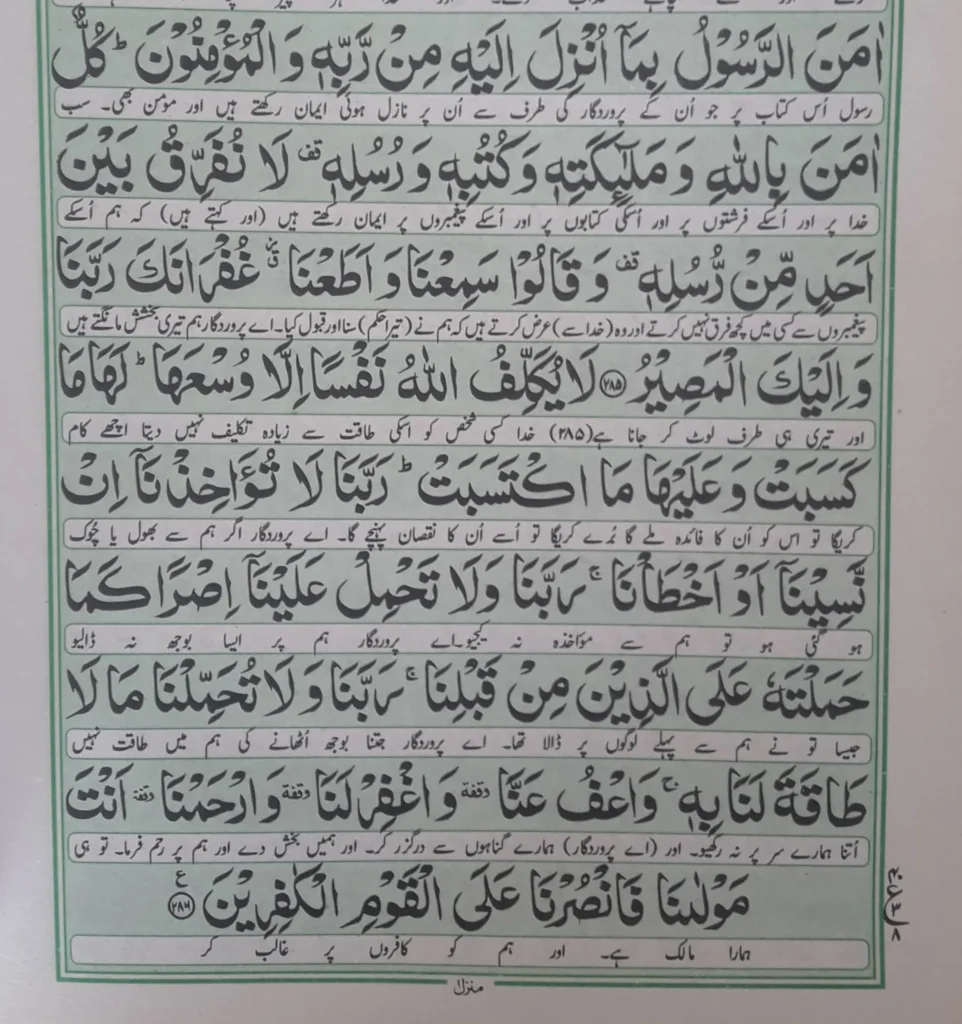 اٰمَنَ الرَّسُوْلُ بِمَاۤ اُنْزِلَ اِلَيْهِ مِنْ رَّبِّهٖ وَ الْمُؤْمِنُوْنَ ؕ كُلٌّ
رسول اُس کتاب پر جو اُن کے پروردگار کی طرف سے اُن پر نازل ہوئی ایمان رکھتے ہیں اور مؤمن بھی۔ سب
اٰمَنَ بِاللّٰهِ وَ مَلٰٓئِكَتِهٖ وَ كُتُبِهٖ وَ رُسُلِهٖ ۟ قف لَا نُفَرِّقُ بَيْنَ
خدا پر اور اُسکے فرشتوں پر اور اُسکی کتابوں پر اور اُسکے پیغمبروں پر ایمان رکھتے ہیں (اور کہتے ہیں) کہ ہم اُسکے
اَحَدٍ مِّنْ رُّسُلِهٖ ۟ قف وَ قَالُوْا سَمِعْنَا وَ اَطَعْنَا غُفْرَانَكَ رَبَّنَا
پیغمبروں سے کسی میں کچھ فرق نہیں کرتے اور وہ (خدا سے) عرض کرتے ہیں کہ ہم نے (تیرا حکم) سنا اور قبول کیا۔ اے پروردگار ہم تیری بخشش مانگتے ہیں
وَ اِلَيْكَ الْمَصِيْرُ ۲۸۵ لَا يُكَلِّفُ اللّٰهُ نَفْسًا اِلَّا وُسْعَهَا ؕ لَهَا مَا
اور تیری ہی طرف لوٹ کر جانا ہے (۲۸۵) خدا کسی شخص کو اسکی طاقت سے زیادہ تکلیف نہیں دیتا اچھے کام
كَسَبَتْ وَ عَلَيْهَا مَا اكْتَسَبَتْ ؕ رَبَّنَا لَا تُؤَاخِذْنَاۤ اِنْ
کریگا تو اس کو اُن کا فائدہ ملے گا بُرے کریگا تو اُسے اُن کا نقصان پہنچے گا۔ اے پروردگار اگر ہم سے بھول یا چُوک
نَّسِيْنَاۤ اَوْ اَخْطَاْنَا ۚ رَبَّنَا وَلَا تَحْمِلْ عَلَيْنَاۤ اِصْرًا كَمَا
ہو گئی ہو تو ہم سے مؤاخذہ نہ کیجیو۔ اے پروردگار ہم پر ایسا بوجھ نہ ڈالیو
حَمَلْتَهٗ عَلَى الَّذِيْنَ مِنْ قَبْلِنَا ۚ رَبَّنَا وَ لَا تُحَمِّلْنَا مَا لَا
جیسا تو نے ہم سے پہلے لوگوں پر ڈالا تھا۔ اے پروردگار جتنا بوجھ اُٹھانے کی ہم میں طاقت نہیں
طَاقَةَ لَنَا بِهٖ ۚ وَ اعْفُ عَنَّا وقفة وَ اغْفِرْ لَنَا وقفة وَ ارْحَمْنَا وقفة اَنْتَ
اُتنا ہمارے سر پر نہ رکھیو۔ اور (اے پروردگار) ہمارے گناہوں سے درگزر کر۔ اور ہمیں بخش دے اور ہم پر رحم فرما۔ تو ہی
مَوْلٰىنَا فَانْصُرْنَا عَلَى الْقَوْمِ الْكٰفِرِيْنَ ع ۲۸۶
ہمارا مالک ہے۔ اور ہم کو کافروں پر غالب کر
منزل